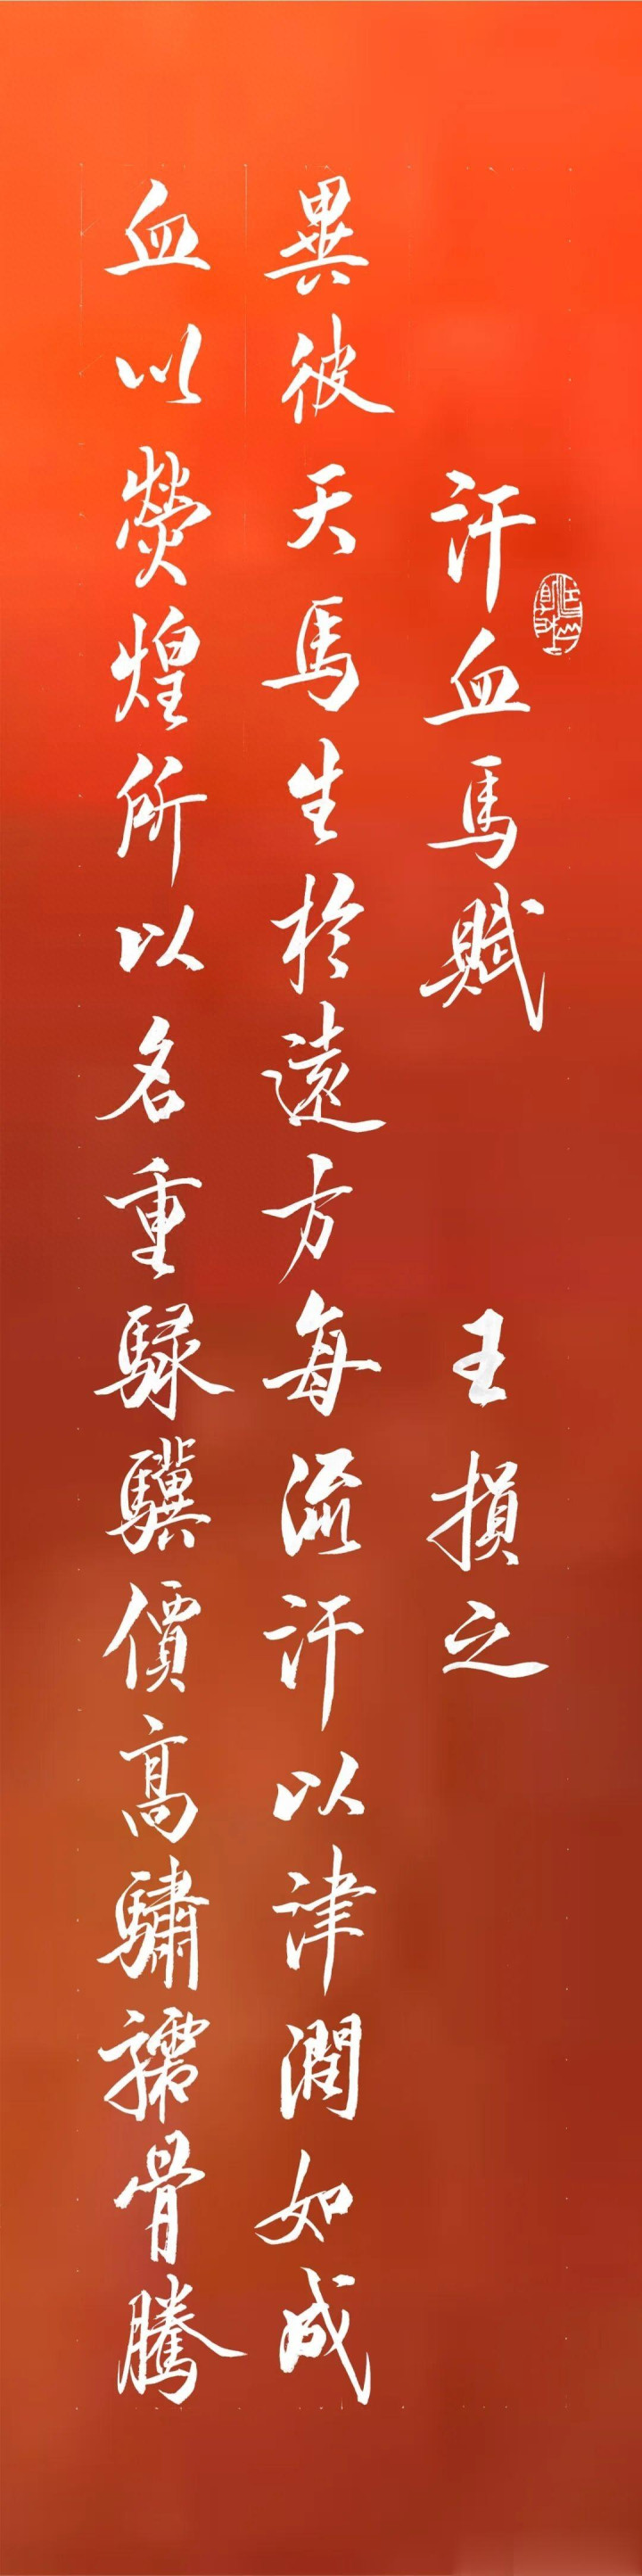 汗血馬賦 王損之
異彼天馬生於遠方每流汗以津潤如成
血以熒煌所以名重騄驥價高驌骨騰